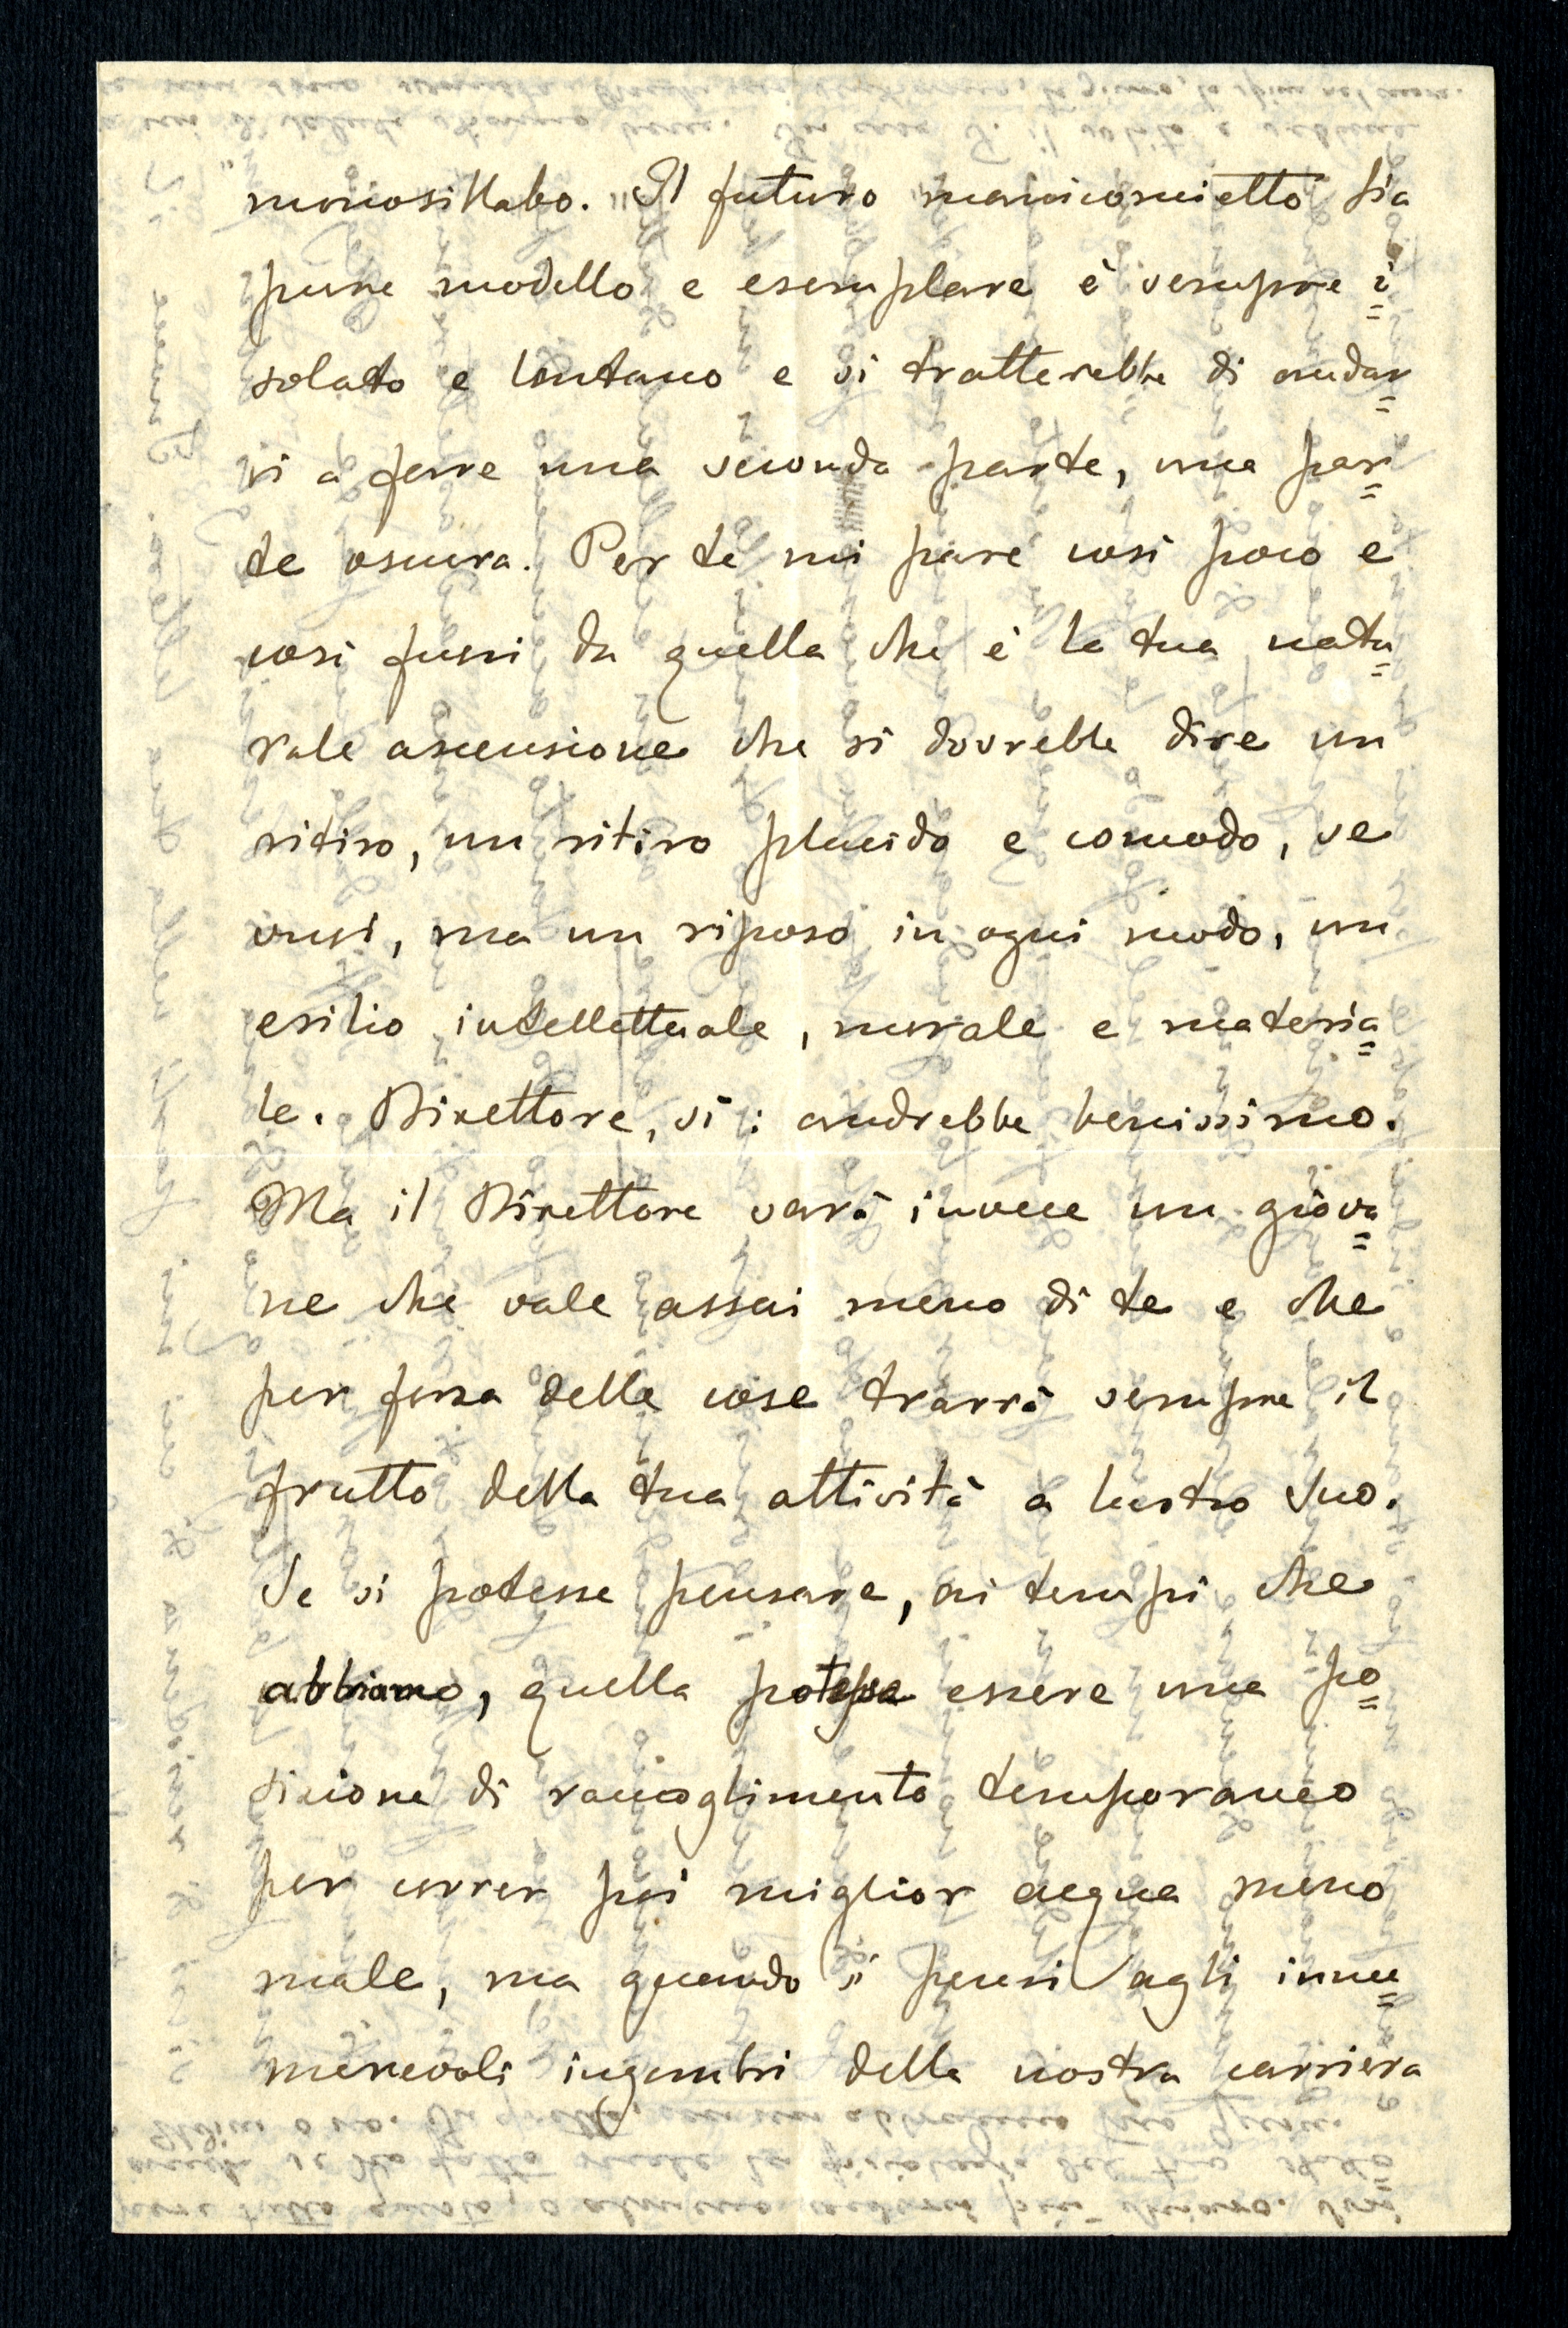 monosillabo. "Il futuro "manicomietto" sia
pure modello e esemplare è sempre i=
solato e lontano e si tratterebbe di andar=
vi a fare una seconda parte, una par=
te oscura. Per te mi pare così poco e
così fuori da quella che è la tua natu=
rale ascensione che si dovrebbe dire un
ritiro, un ritiro placido e comodo, se
vuoi, ma un riposo in ogni modo, un
esilio intellettuale, morale e materia=
le. Direttore, sì: andrebbe benissimo.
Ma il Direttore sarà invece un giova=
ne che vale assai meno di te e che
per forza delle cose trarrà sempre il
frutto della tua attività a lustro suo.
Se si potesse pensare, ai tempi che
abbiamo, quella potesse essere una po=
sizione di raccoglimento temporaneo
per correr poi miglior acqua meno
male, ma quando si pensi agli innu=
merevoli ingombri della nostra carriera